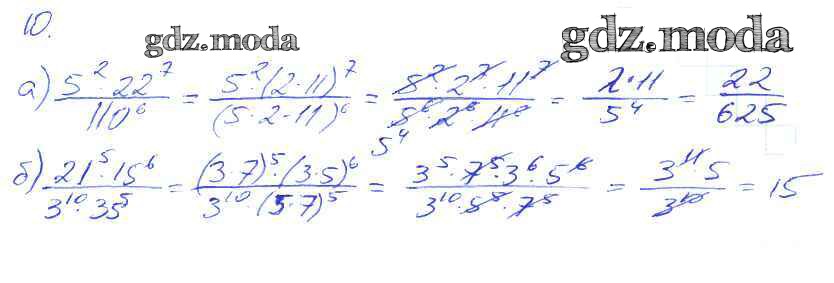 10.
gdz.moda
gdz.moda
а) 5²·22⁷/110⁶ = 5²·(2·11)⁷/(5·2·11)⁶ = 5²·2⁷·11⁷/5⁶·2⁶·11⁶ 5⁴ = 2·11/5⁴ = 22/625
б) 21⁵·15⁶/3¹⁰·35⁵ = (3·7)⁵·(3·5)⁶/3¹⁰·(5·7)⁵ = 3⁵·7⁵·3⁶·5⁶/3¹⁰·5⁵·7⁵ = 3¹¹·5/3¹⁰ = 15